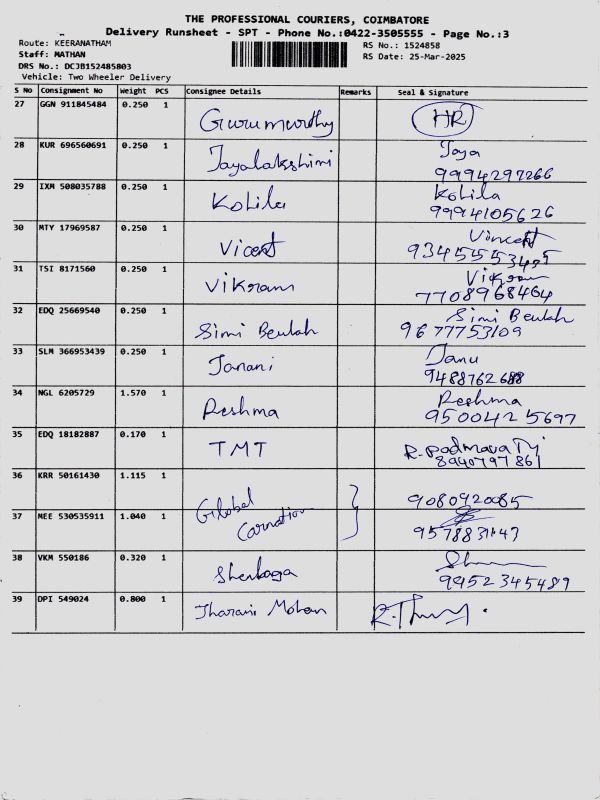 THE PROFESSIONAL COURIERS, COIMBATORE
Delivery Runsheet - SPT - Phone No.:0422-3505555 - Page No.:3
Route: KEERANATHAM
RS No.: 1524858
Staff: MATHAN
RS Date: 25-Mar-2025
DRS No.: DCJB152485803
Vehicle: Two Wheeler Delivery
S No Consignment No Weight PCS Consignee Details Remarks Seal & Signature
27 GGN 911845484 0.250 1 Gurumurthy HR
28 KUR 696560691 0.250 1 Jayalakshimi Jaya
9994297266
29 IXM 508035788 0.250 1 Kokila Kokila
9994105626
30 MTY 17969587 0.250 1 Vicent Vincent
31 TSI 8171560 0.250 1 Vikram Vikram
7708968464
32 EDQ 25669540 0.250 1 Simi Beulah Simi Beulah
9677753109
33 SLM 366953439 0.250 1 Janani Janu
34 NGL 6205729 1.570 1 Reshma Reshma
9500425697
35 EDQ 18182887 0.170 1 TMT R. Padmavati
8940797861
36 KRR 50161430 1.115 1 Global 9080920085
37 MEE 530535911 1.040 1 Carnation
38 VKM 550186 0.320 1 Shenbaga
9952345489
39 DPI 549024 0.800 1 Tharani Mohan